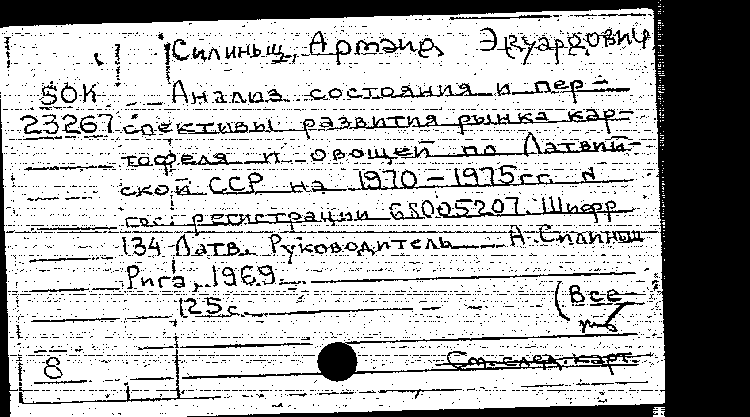 Силиньщ, Артэир, Эдуардович
50К Анализ состояния и пер-
23267 спективы развития рынка кар-
тофеля и овощей по Латвий-
ской ССР на 1970-1975гг. N
гос. регистрации 68005207. Шифр
134 Латв. Руководитель А. Силиньщ
Рига, 1969.
125с.
(Все
тб
8 См. след. карт.